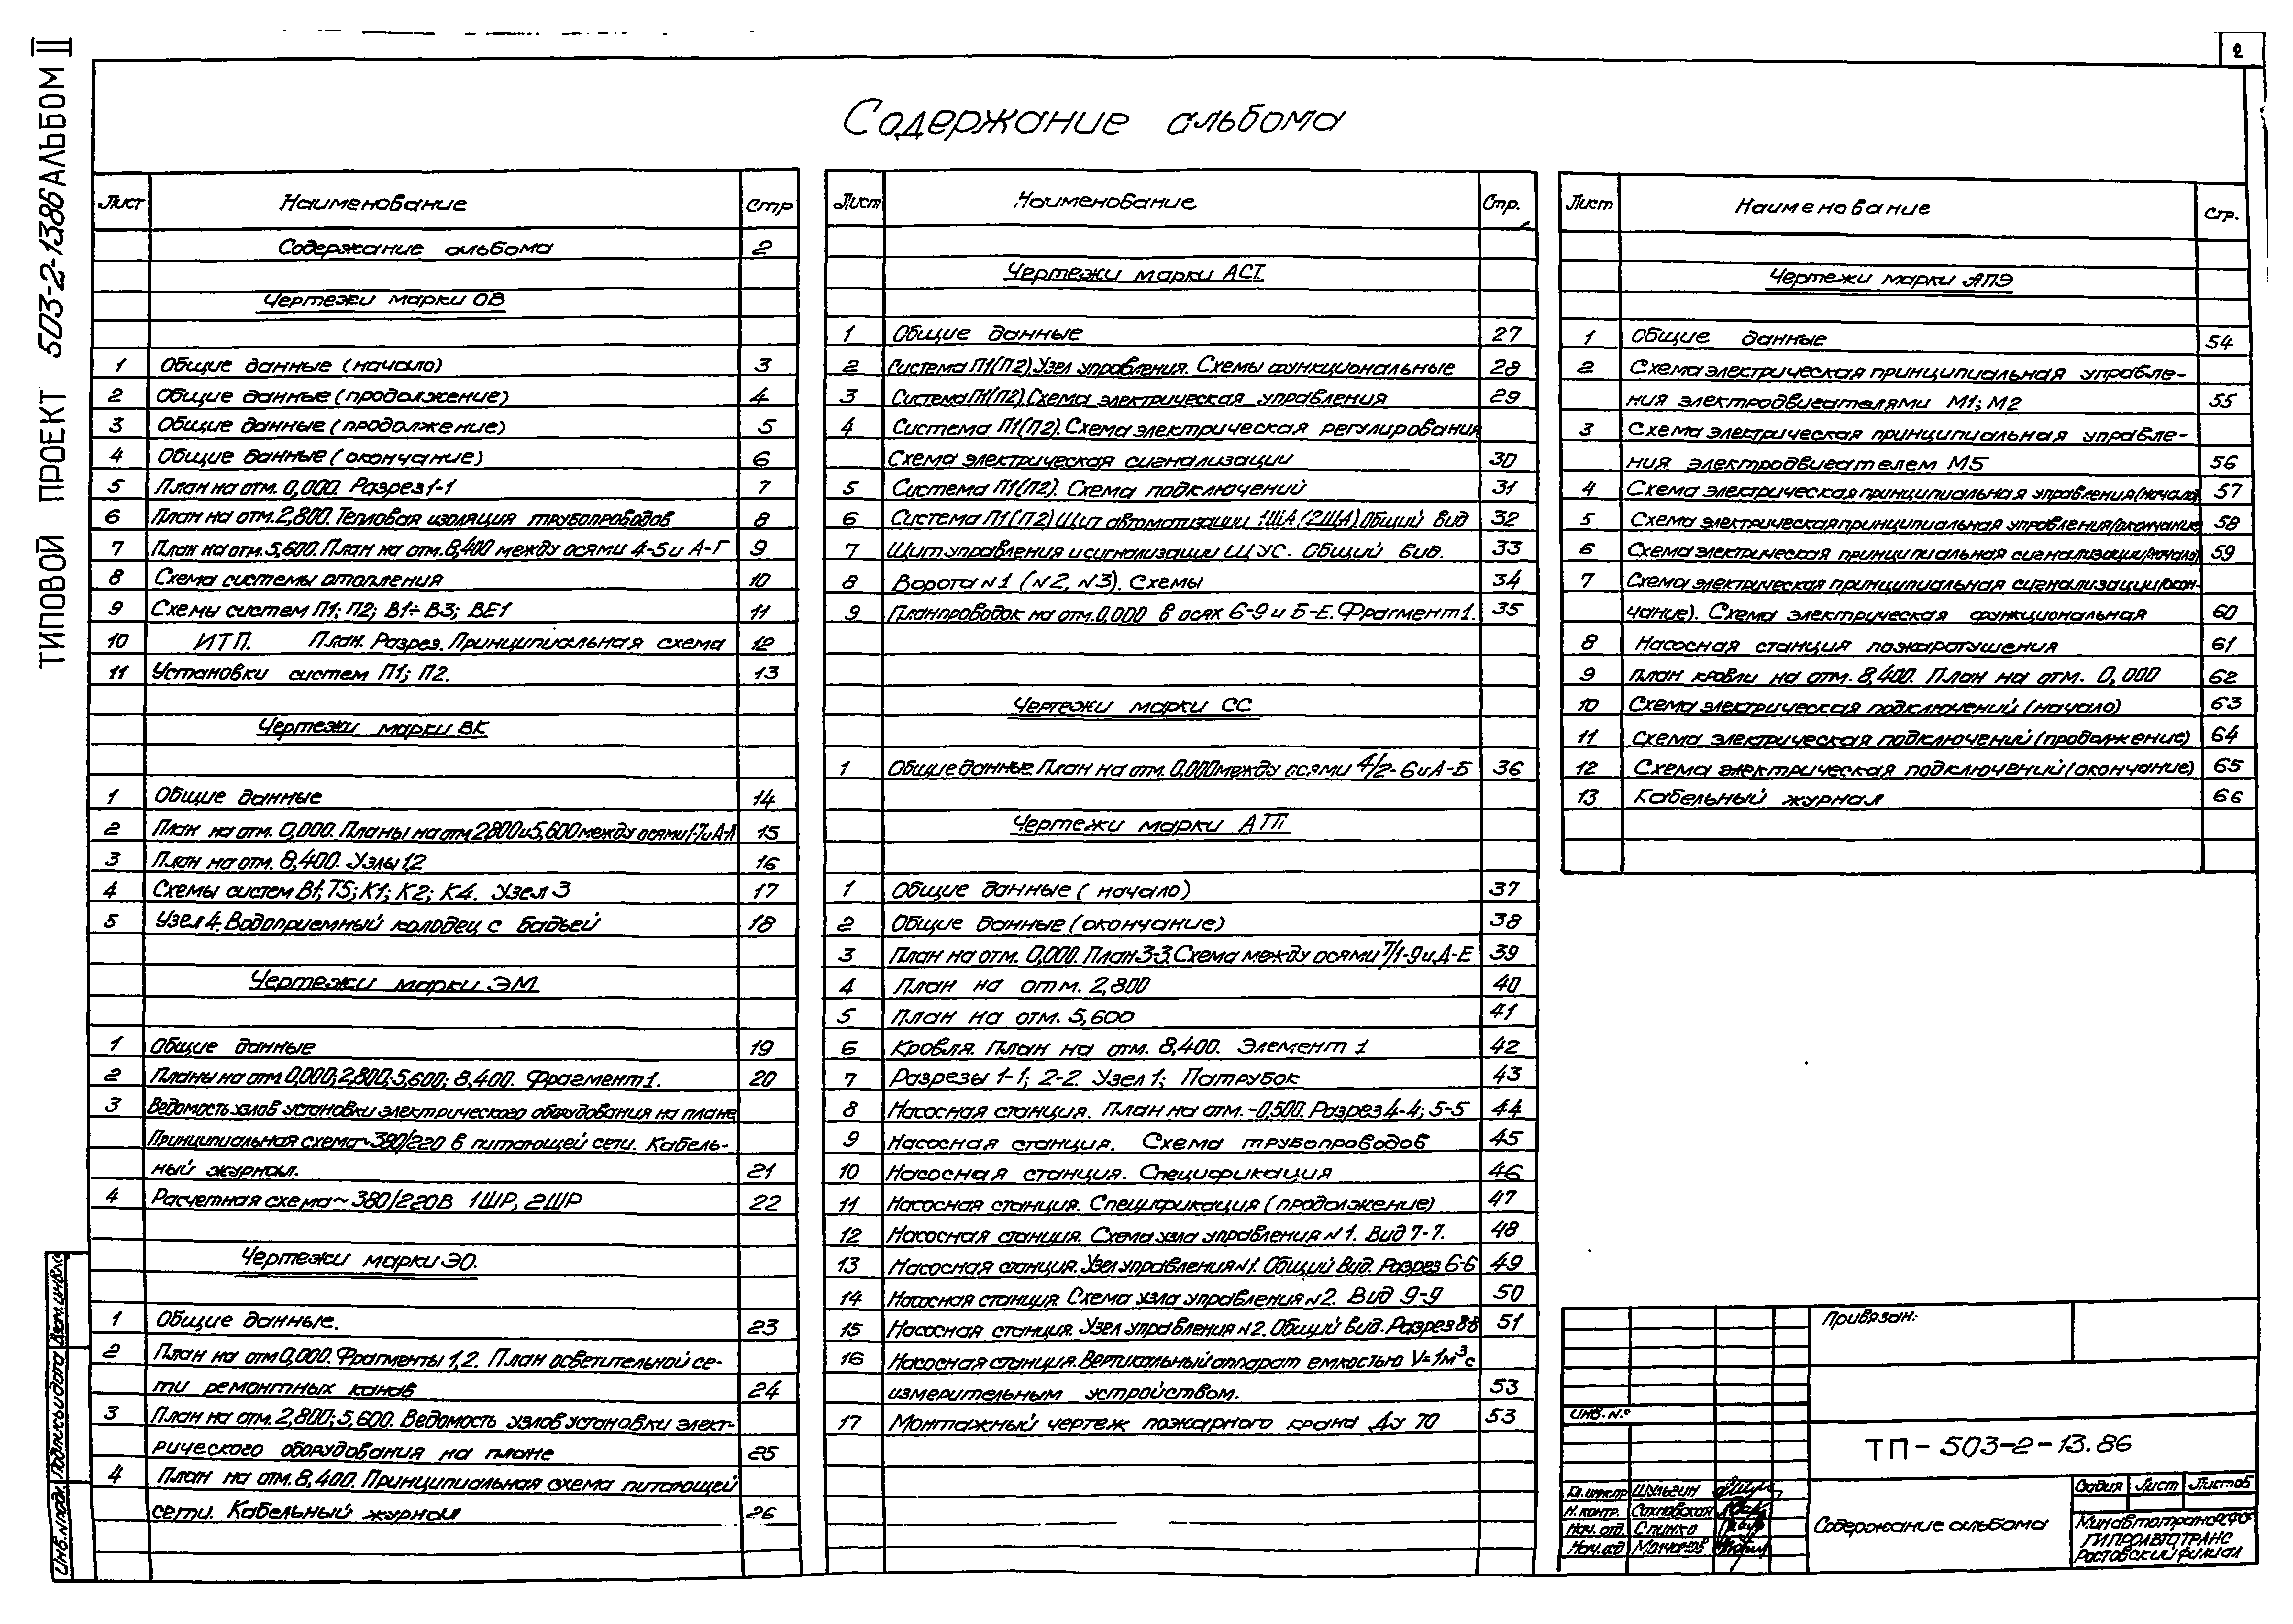 2
ТИПОВОЙ ПРОЕКТ 503-2-13.86 АЛЬБОМ III
Содержание альбома
Лист Наименование Стр
Содержание альбома 2
Чертежи марки ОВ
1 Общие данные (начало) 3
2 Общие данные (продолжение) 4
3 Общие данные (продолжение) 5
4 Общие данные (окончание) 6
5 План на отм. 0,000. Разрез 1-1 7
6 План на отм. 2,800. Тепловая изоляция трубопроводов 8
7 План на отм. 5,600. План на отм. 8,400 между осями 4-5 и А-Г 9
8 Схема системы отопления 10
9 Схемы систем П1; П2; В1÷В3; ВЕ1 11
10 ИТП. План. Разрез. Принципиальная схема 12
11 Установки систем П1; П2. 13
Чертежи марки ВК
1 Общие данные 14
2 План на отм. 0,000. Планы на отм. 2,800 и 5,600 между осями 15
3 План на отм. 8,400. Узлы 1,2 16
4 Схемы систем В1; Т5; К1; К2; К4. Узел 3 17
5 Узел 4. Водоприемный колодец с бадьей 18
Чертежи марки ЭМ
1 Общие данные 19
2 Планы на отм. 0,000; 2,800; 5,600; 8,400. Фрагмент 1. 20
3 Ведомость узлов установки электрического оборудования на плане
Принципиальная схема ~380/220 в питающей сети. Кабель-
ный журнал. 21
4 Расчетная схема ~ 380/220В 1ШР, 2ШР 22
Чертежи марки ЭО.
1 Общие данные. 23
2 План на отм 0,000. Фрагменты 1,2. План осветительной се-
ти ремонтных канав 24
3 План на отм. 2,800; 5,600. Ведомость узлов установки элект-
рического оборудования на плане 25
4 План на отм. 8,400. Принципиальная схема питающей
сети. Кабельный журнал 26
Лист Наименование Стр.
Чертежи марки АСТ.
1 Общие данные 27
2 Система П1(П2). Узел управления. Схемы функциональные 28
3 Система П1(П2). Схема электрическая управления 29
4 Система П1(П2). Схема электрическая регулирования
Схема электрическая сигнализации 30
5 Система П1(П2). Схема подключений 31
6 Система П1(П2) Щит автоматизации 1ЩА (2ЩА) Общий вид 32
7 Щит управления и сигнализации ЩУС. Общий вид. 33
8 Ворота N1 (N2, N3). Схемы 34
9 План проводок на отм. 0,000 в осях 6-9 и Б-Е. Фрагмент 1. 35
Чертежи марки СС
1 Общие данные. План на отм. 0,000 между осями 4/2-6 и А-Б 36
Чертежи марки АТП
1 Общие данные (начало) 37
2 Общие данные (окончание) 38
3 План на отм. 0,000. План 3-3. Схема между осями 7/1-9 и Д-Е 39
4 План на отм. 2,800 40
5 План на отм. 5,600 41
6 Кровля. План на отм. 8,400. Элемент 1 42
7 Разрезы 1-1; 2-2. Узел 1; Патрубок 43
8 Насосная станция. План на отм. -0,500. Разрез 4-4; 5-5 44
9 Насосная станция. Схема трубопроводов 45
10 Насосная станция. Спецификация 46
11 Насосная станция. Спецификация (продолжение) 47
12 Насосная станция. Схема узла управления N 1. Вид 7-7. 48
13 Насосная станция. Узел управления N1. Общий вид. Разрез 6-6 49
14 Насосная станция. Схема узла управления N2. Вид 9-9 50
15 Насосная станция. Узел управления N2. Общий вид. Разрез 8-8 51
16 Насосная станция. Вертикальный аппарат емкостью V=1м³ с
измерительным устройством. 53
17 Монтажный чертеж пожарного крана Ду 70 53
Лист Наименование Стр.
Чертежи марки АПЭ
1 Общие данные 54
2 Схема электрическая принципиальная управле-
ния электродвигателями М1; М2 55
3 Схема электрическая принципиальная управле-
ния электродвигателем М5 56
4 Схема электрическая принципиальная управления (начало) 57
5 Схема электрическая принципиальная управления (окончание) 58
6 Схема электрическая принципиальная сигнализации (начало) 59
7 Схема электрическая принципиальная сигнализации (окон-
чание). Схема электрическая функциональная 60
8 Насосная станция пожаротушения 61
9 План кровли на отм. 8,400. План на отм. 0,000 62
10 Схема электрическая подключений (начало) 63
11 Схема электрическая подключений (продолжение) 64
12 Схема электрическая подключений (окончание) 65
13 Кабельный журнал 66
Привязан:
Инв. №
ТП-503-2-13.86
Гл. инж. пр Шульгин
Н. контр.
Нач. отд. Слинко
Нач. отд
Содержание альбома
Стадия Лист Листов
Минавтотранс РСФСР
ГИПРОАВТОТРАНС
Ростовский филиал
Инв. N подл. Подпись и дата Взам. инв. N